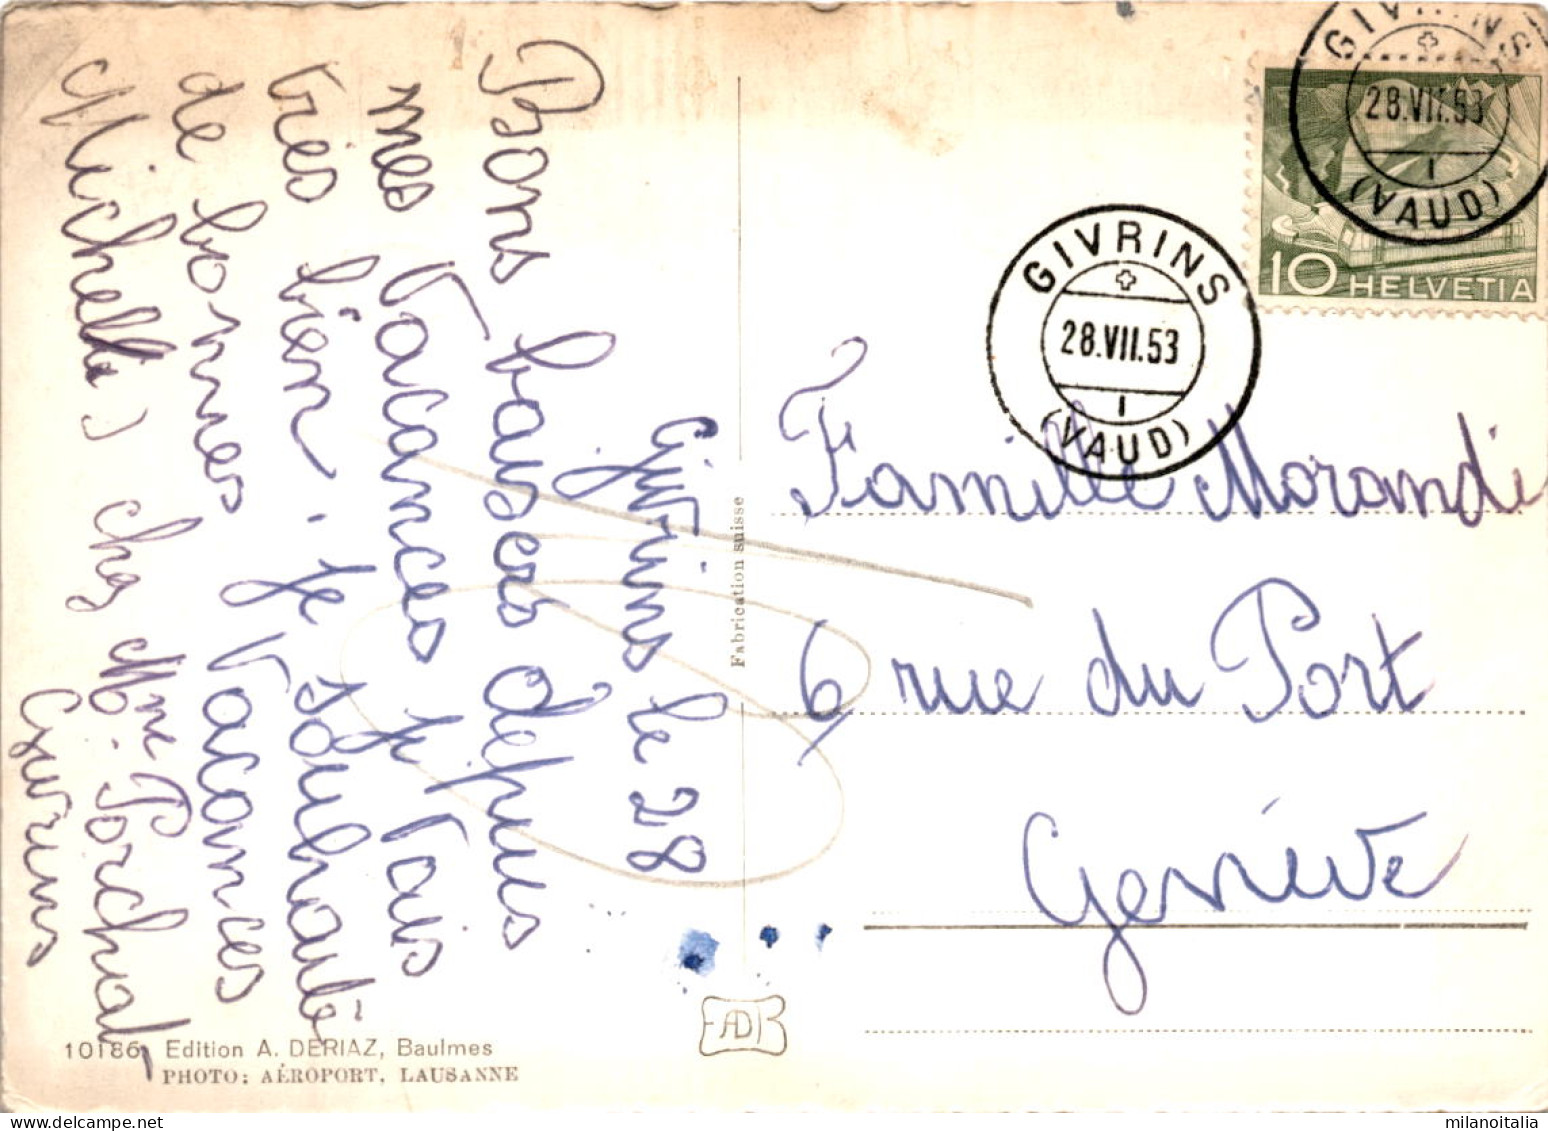 Givrins le 28
Bons baisers depuis
mes vacances je vais
très bien. Je souhaite
de bonnes vacances
Michelle chez Mme. Porchat,
Givrins
Fabrication suisse
GIVRINS
28.VII.53
(VAUD)
GIVRINS
28.VII.53
(VAUD)
10 HELVETIA
Famille Morandi
6 rue du Port
Genève
10186 Edition A. DERIAZ, Baulmes
PHOTO: AÉROPORT, LAUSANNE
milanoitalia